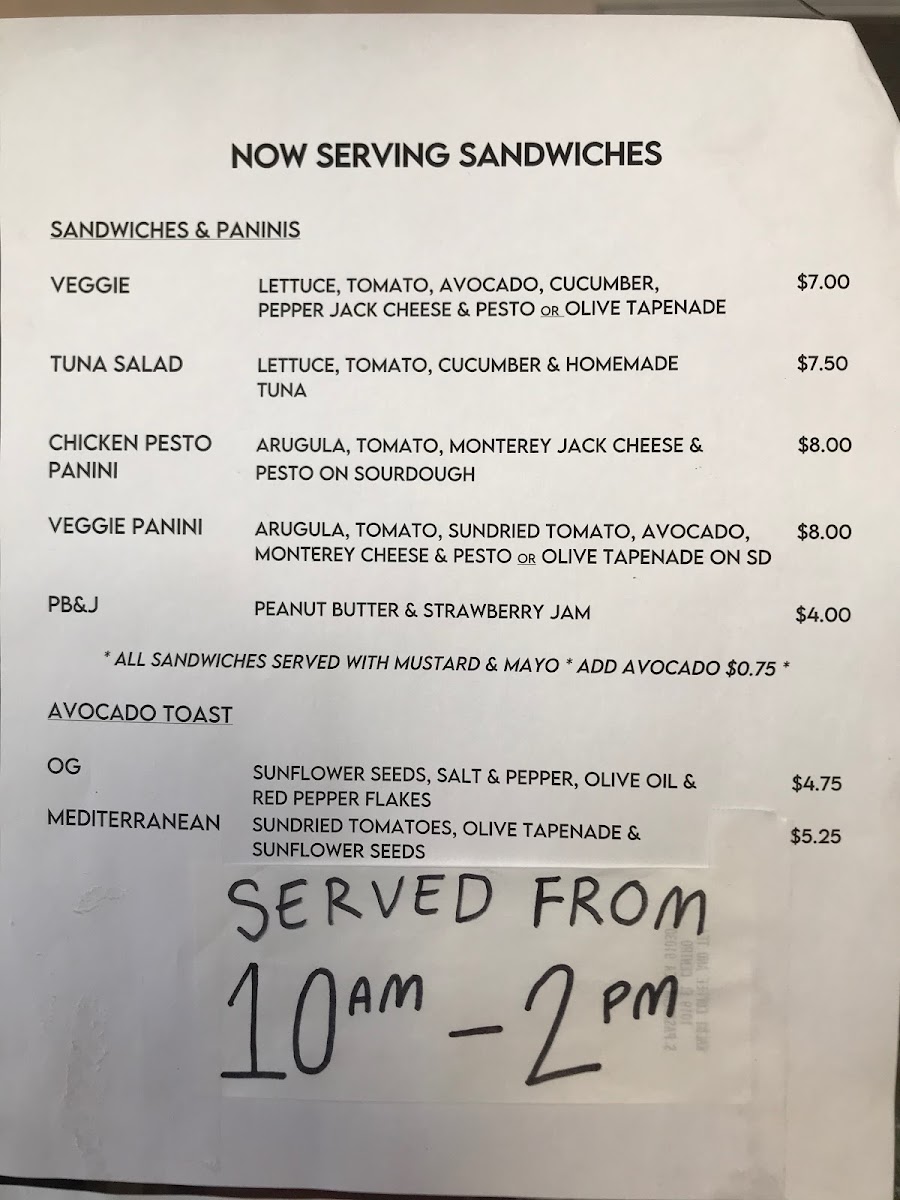 NOW SERVING SANDWICHES
SANDWICHES & PANINIS
VEGGIE LETTUCE, TOMATO, AVOCADO, CUCUMBER, $7.00
PEPPER JACK CHEESE & PESTO OR OLIVE TAPENADE
TUNA SALAD LETTUCE, TOMATO, CUCUMBER & HOMEMADE $7.50
TUNA
CHICKEN PESTO ARUGULA, TOMATO, MONTEREY JACK CHEESE & $8.00
PANINI PESTO ON SOURDOUGH
VEGGIE PANINI ARUGULA, TOMATO, SUNDRIED TOMATO, AVOCADO, $8.00
MONTEREY CHEESE & PESTO OR OLIVE TAPENADE ON SD
PB&J PEANUT BUTTER & STRAWBERRY JAM $4.00
* ALL SANDWICHES SERVED WITH MUSTARD & MAYO * ADD AVOCADO $0.75 *
AVOCADO TOAST
OG SUNFLOWER SEEDS, SALT & PEPPER, OLIVE OIL & $4.75
RED PEPPER FLAKES
MEDITERRANEAN SUNDRIED TOMATOES, OLIVE TAPENADE & $5.25
SUNFLOWER SEEDS
SERVED FROM
10AM - 2PM